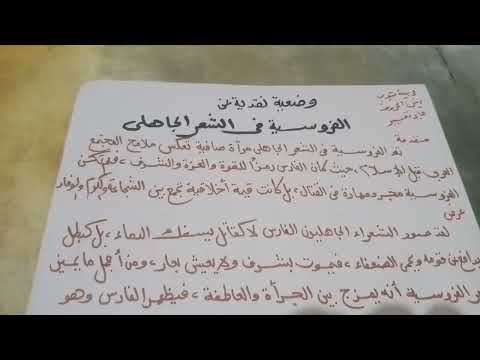 وضعية نقدية عن
الفروسية في الشعر الجاهلي
مقدمة
تعد الفروسية في الشعر الجاهلي مرآة صافية تعكس ملامح المجتمع
العربي قبل الإسلام، حيث كان الفارس رمزا للقوة والعزة والشرف، فلم تكن
الفروسية مجرد مهارة في القتال، بل كانت قيمة أخلاقية تجمع بين الشجاعة والكرم والوفاء
عرض
لقد صور الشعراء الجاهليون الفارس لا كقاتل يسفك الدماء، بل كبطل
يدافع عن قومه ويحمي الضعفاء، فيموت بشرف ولا يعيش بعار، ومن أجمل ما يميز
الفروسية أنه يمزج بين الجرأة والعاطفة، فيظهر الفارس وهو